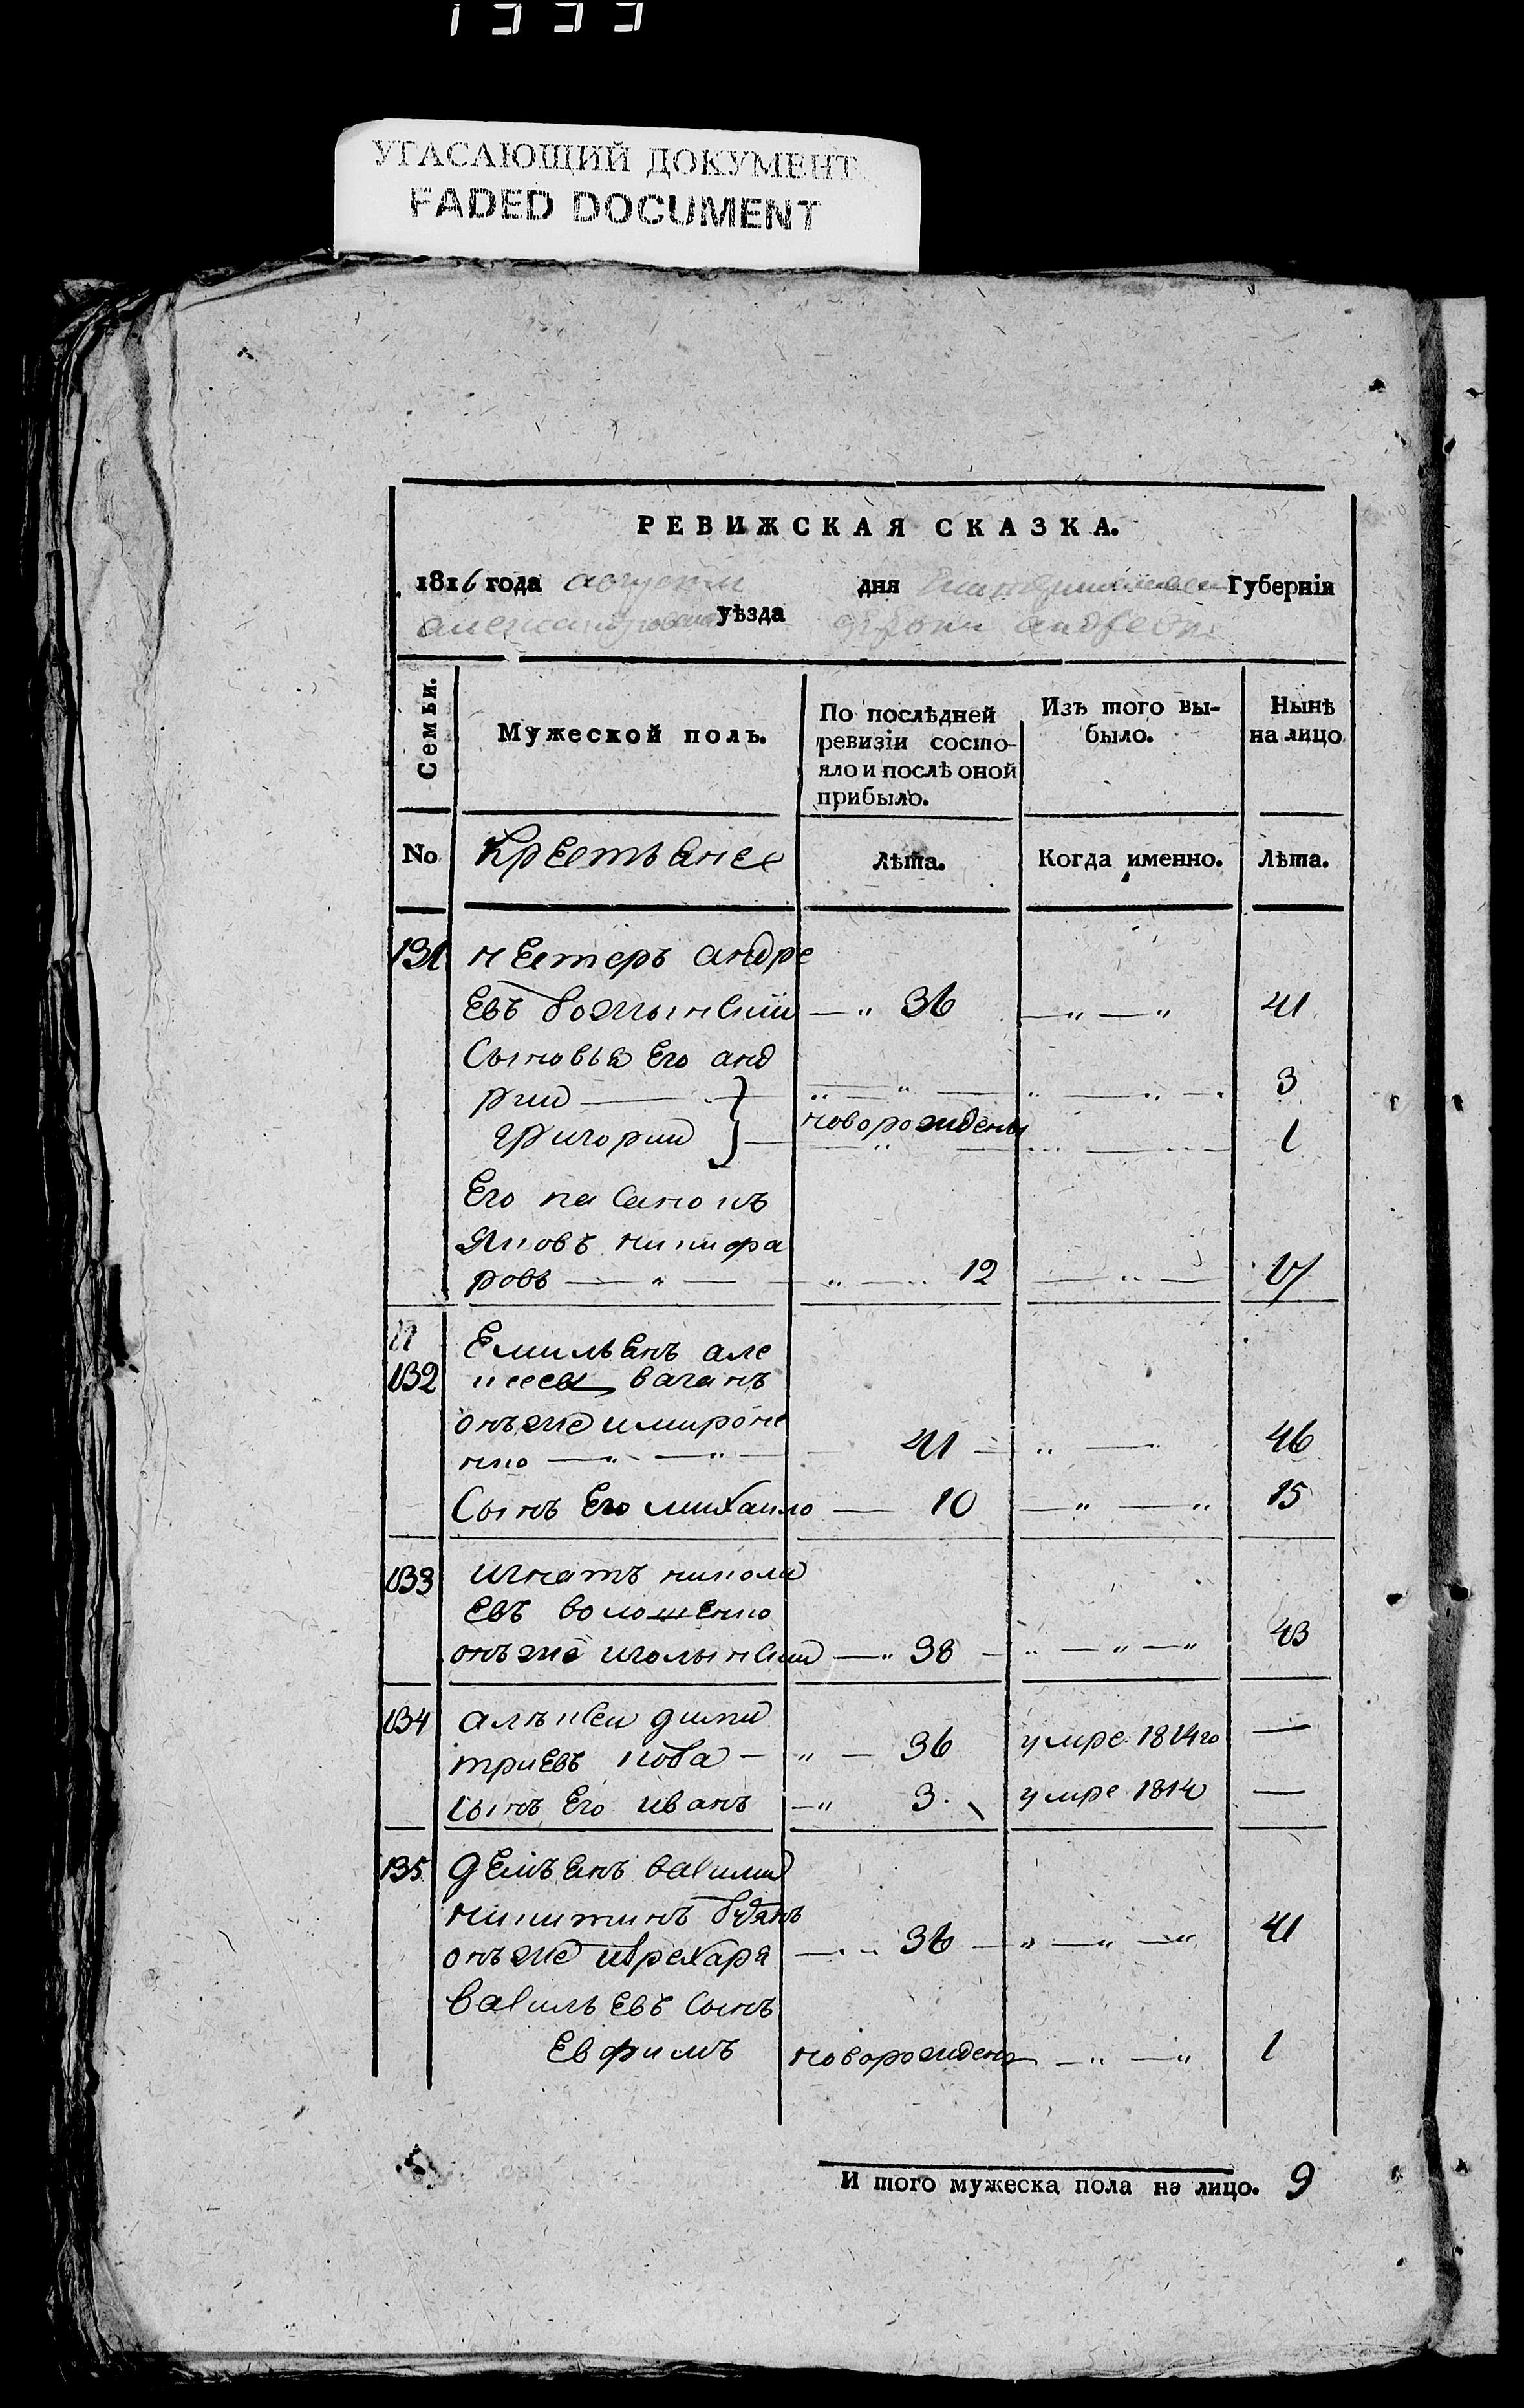 1999
УГАСАЮЩИЙ ДОКУМЕНТ
FADED DOCUMENT
РЕВИЖСКАЯ СКАЗКА.
1816 года августа дня Губернiи
уѣзда
Семьи.
Мужеской полъ.
По послѣдней ревизiи состояло и послѣ оной прибыло.
Изъ того выбыло.
Нынѣ на лицо
No
крестьяне
лѣта.
Когда именно.
Лѣта.
131 нестеръ андре
евъ 36 41
Сыновья Его анд
рии 3
григории новорождены 1
Его пасынокъ
никифо
ровъ 12 17
132 Емильянъ але
ваганъ
онъже мироне
нко 41 46
Сынъ Его михаило 10 15
133 игнатъ никола
евъ волошенко
онъже 38 43
134 дими
триевъ коба 36 умре 1814го
сынъ Его иванъ 3 умре 1814
135 демъянъ василиа
никитинъ
онъже 36 41
василь евъ сынъ
Евфимъ новорожденъ 1
И того мужеска пола на лицо. 9